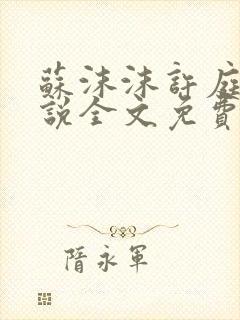 蘇沫沫許庭
說全文免費
隋永軍